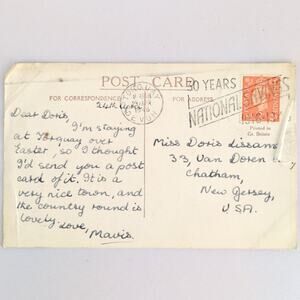 POST CARD
FOR CORRESPONDENCE
FOR ADDRESS
TORQUAY
DEVON
30 YEARS
NATIONAL SAVINGS
Printed in
Gt. Britain
24th April
Dear Doris,
I'm staying
at Torquay over
Easter, so I thought
I'd send you a post
card of it. It is a
very nice town, and
the country round is
lovely. Love,
Mavis.
Miss Doris
33, Van Doren
Chatham,
New Jersey,
U.S.A.